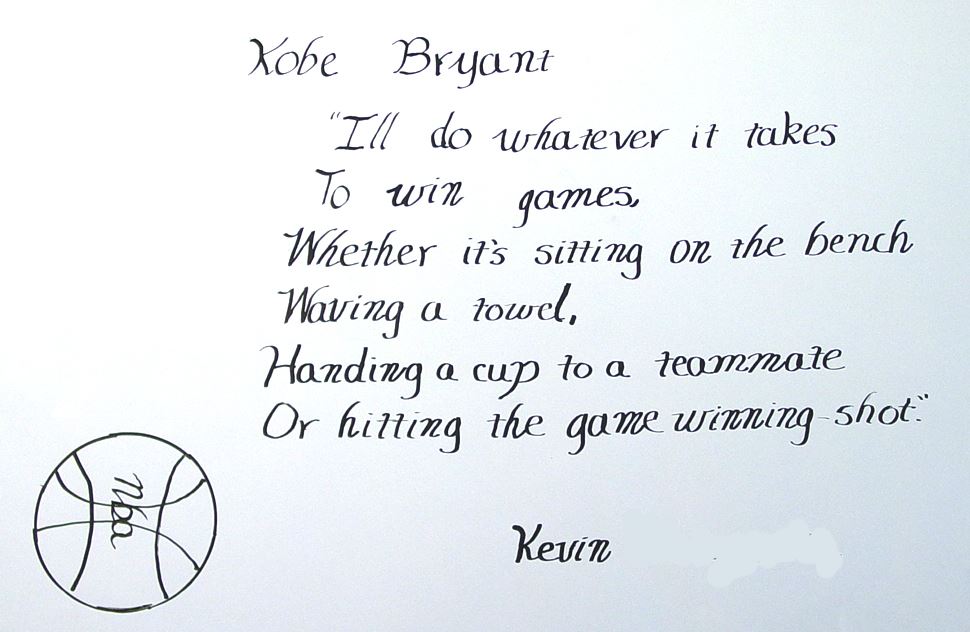 Kobe Bryant
"I'll do whatever it takes
To win games,
Whether it's sitting on the bench
Waving a towel,
Handing a cup to a teammate
Or hitting the game winning-shot."
Nba
Kevin